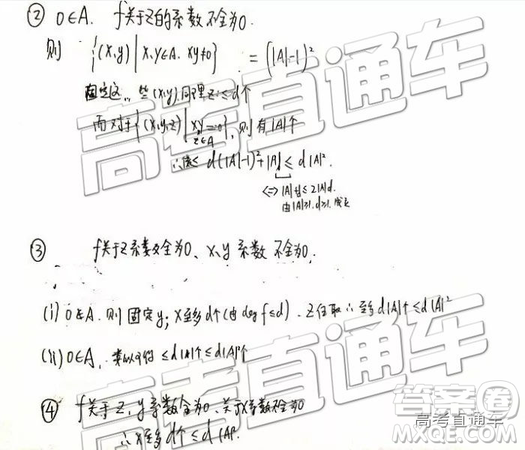 ② 0∈A. f关于z的系数不全为0.
则 {(x,y) | x,y∈A. xy≠0} = (|A|-1)²
固定这些(x,y) 同理z≤d个
而对于{(x,y,z) | xy=0, z∈A}, 则有|A|个
∴ ≤ d(|A|-1)²+|A| ≤ d|A|².
⇔ |A| ≤ 2|A|d.
由|A|≥1. d≥1. 成立
③ f关于z系数全为0、x、y 系数 不全为0.
(i) 0∉A. 则固定y; x至多d个(由deg f≤d). z任取∴至多d|A|个≤d|A|²
(ii) 0∈A, 类似可得 ≤d|A|个≤d|A|²个
④ f关于z、y系数全为0、关于x系数不全为0
∴ x至多d个≤d|A|².
高考直通车
高考直通车
高考直通车
答案圈
高考直通车